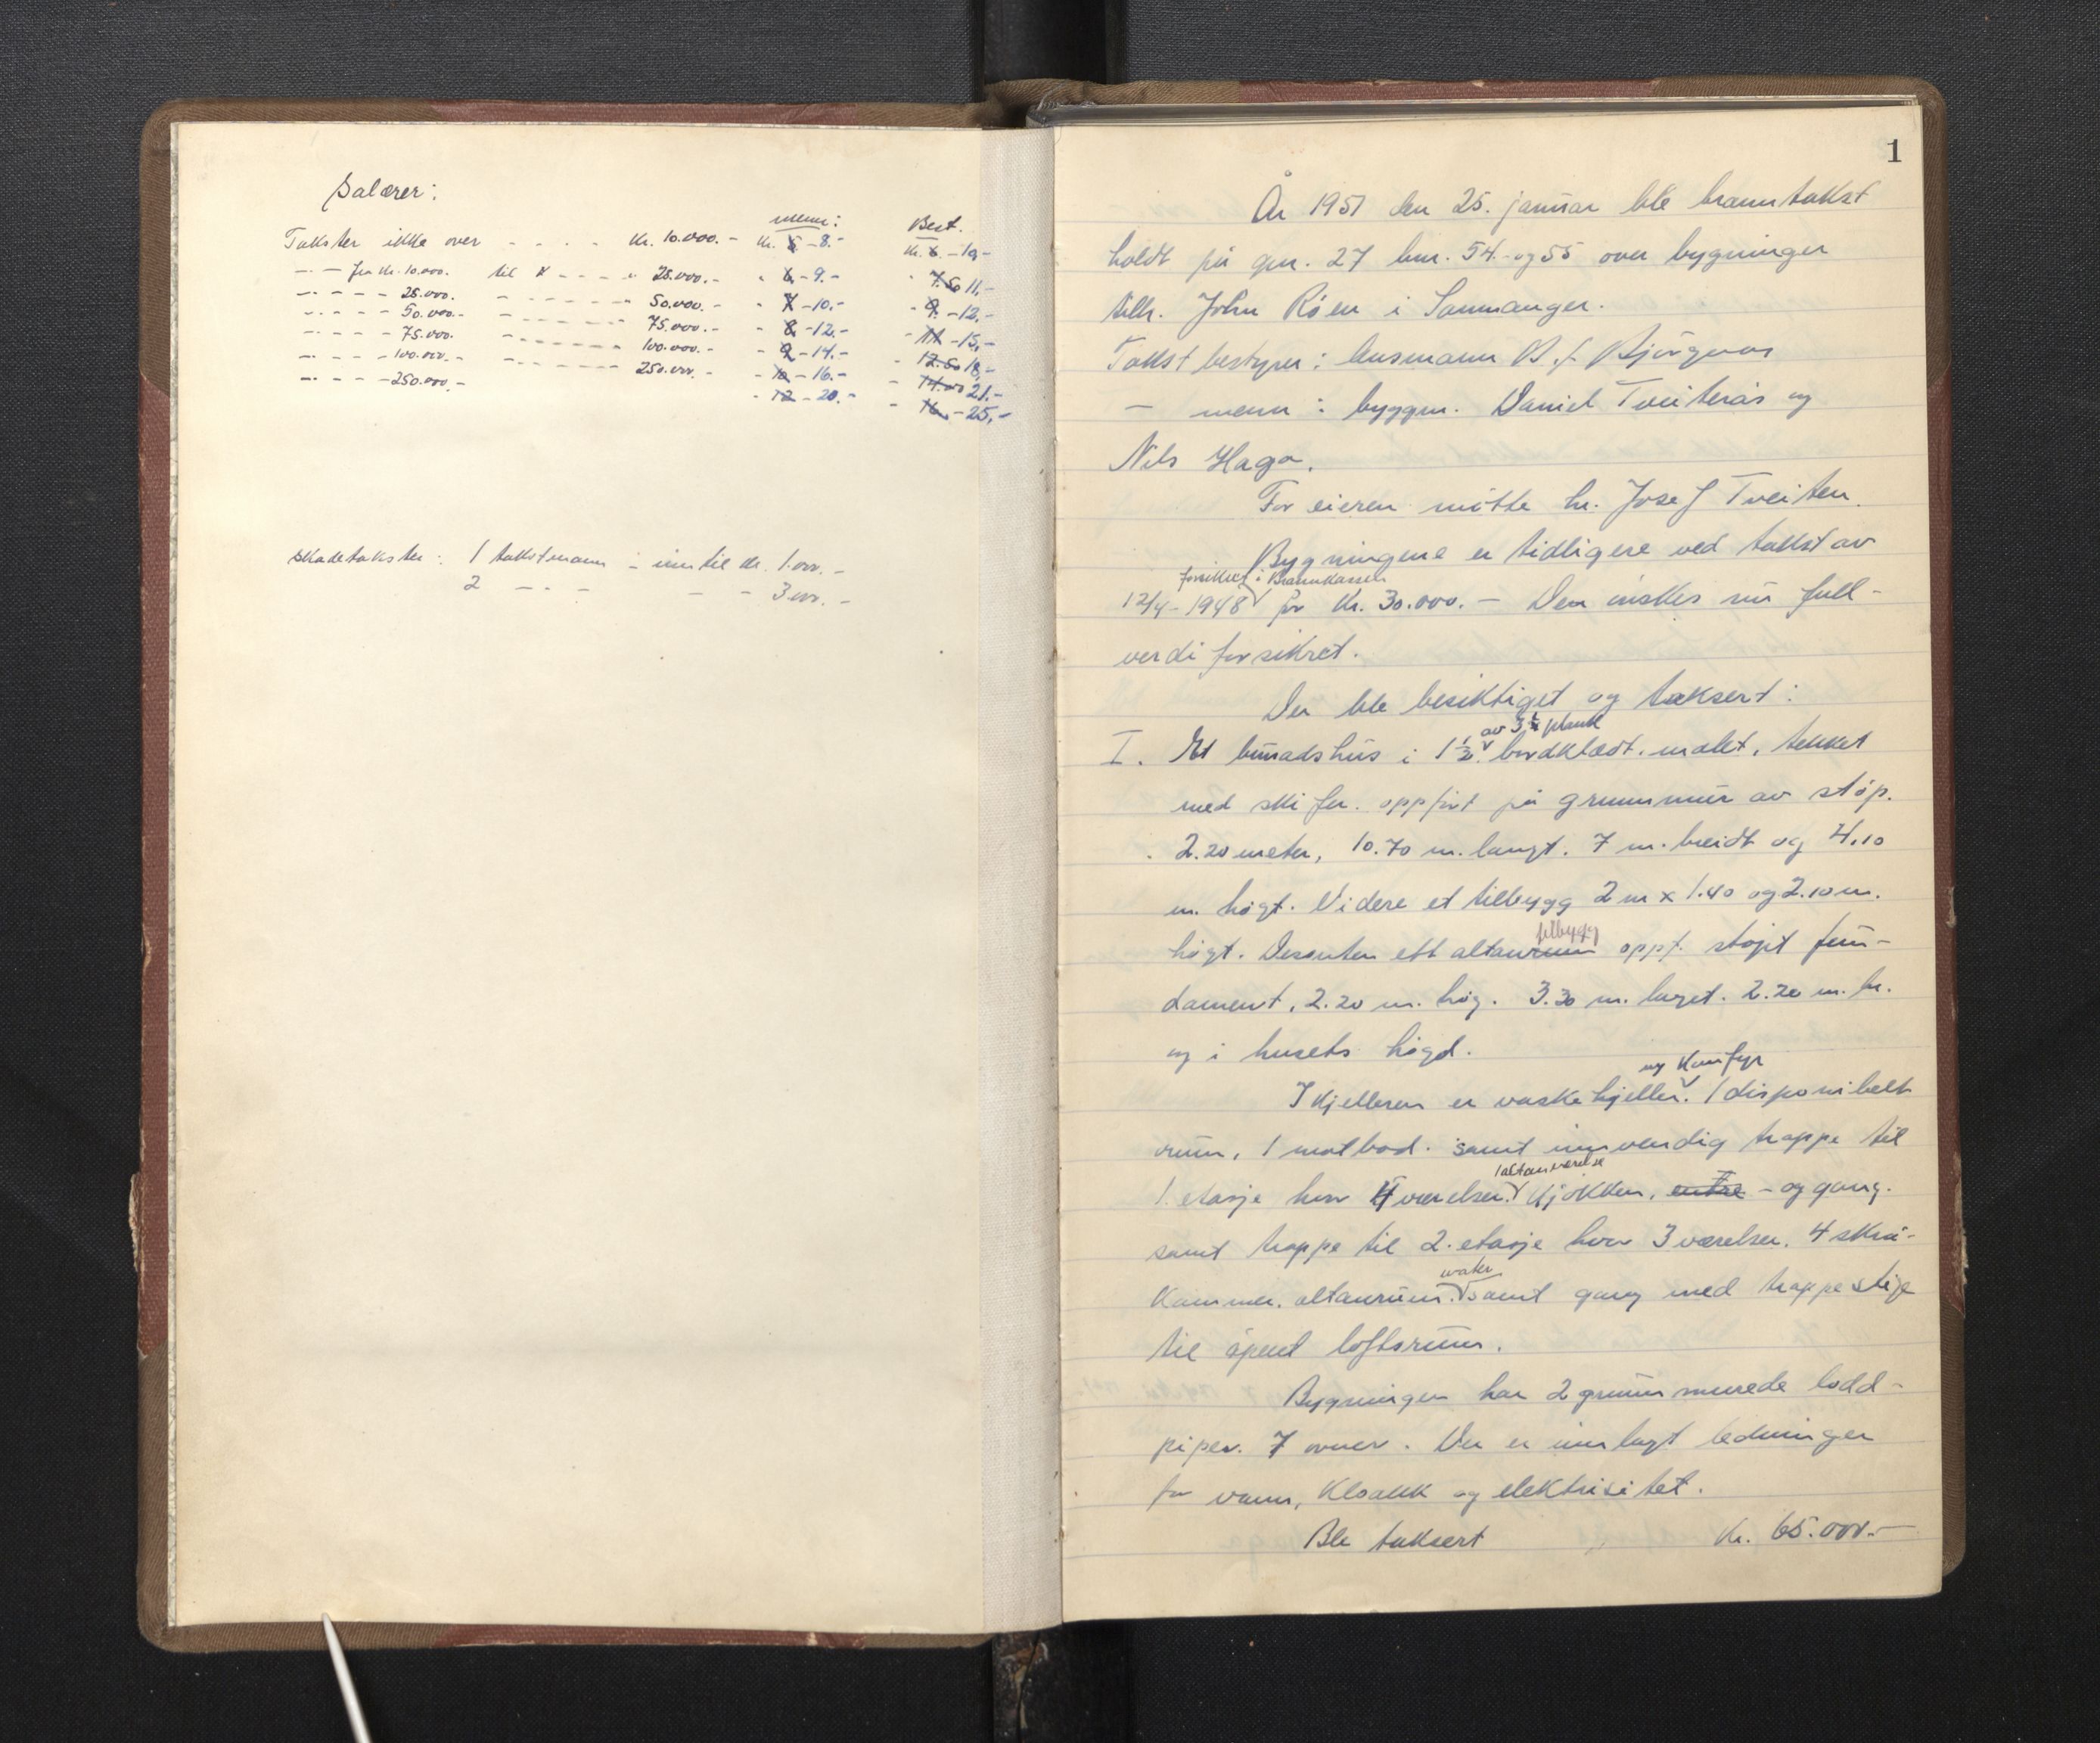 Salærer:
menn: Best.
Takster ikke over - - - - Kr. 10.000.- Kr. 5 - 8.- Kr. 6. - 10.-
-.- fra Kr. 10.000. til " - - - " 25.000.- " 6 - 9.- " 7.50 11,-
-.- - - 25.000. - - - - - - - " 50.000.- " 7 - 10.- " 9. - 12.-
-.- - - 50.000.- - - - - - - - 75.000.- - 8 - 12.- - 11 - 15,-
-.- - - 75.000. - - - - - - - 100.000.- - 9 - 14.- - 12.50 18,-
-.- - - 100.000.- - - - - - - 250.000.- - 10 - 16.- - 14.00 21.-
-.- - - 250.000.- - 12 - 20.- - 16. - 25,-
Skadetakster: 1 takstmann - inntil kr. 1.000.-
2 -.- - - - 3000.-
1
År 1951 den 25. januar ble branntakst
holdt på gnr. 27 bnr. 54.- og 55 over bygninger
tilh. John Röen i Samnanger.
Takstbestyrer: lensmann B. J. Björgaas
— menn: byggm. Daniel Tveiterås og
Nils Haga.
For eieren mötte hr. Josef Tveiten.
Bygningene er tidligere ved takst av
forsikret i Brannkassen
12/4 - 1948 for Kr. 30.000.- Den önskes nu full-
verdi forsikret.
Der ble besiktiget og taksert:
av 3" plank
I. Et bunadshus i 1 1/2. bordklædt. malet, tekket
med skifer. oppfört på grunnmur av stöp.
2.20 meter, 10.70 m. langt. 7 m. breidt og 4.10
m. högt. Videre et tilbygg 2 m x 1.40 og 2.10 m.
tilbygg
högt. Desuten ett altanrum oppf. stöpt fun-
dament, 2.20 m. hög. 3.30 m. laget. 2.20 m. br.
og i husets högd.
og Komfyr
I kjelleren er vaskekjeller. 1 disponibelt
rum, 1 matbod. samt innvendig trappe til
1 altanværelse
1. etasje hvor 4 værelser. Kjökken, entre - og gang.
samt trappe til 2. etasje hvor 3 værelser. 4 skrå-
Kammer. altanrum. samt gang med trappestige
til åpent loftsrum.
Bygningen har 2 grunnmurede lodd-
piper. 7 ovner. Der er innlagt ledninger
for vann, Kloakk og elektrisitet.
Ble taksert Kr. 65.000.-